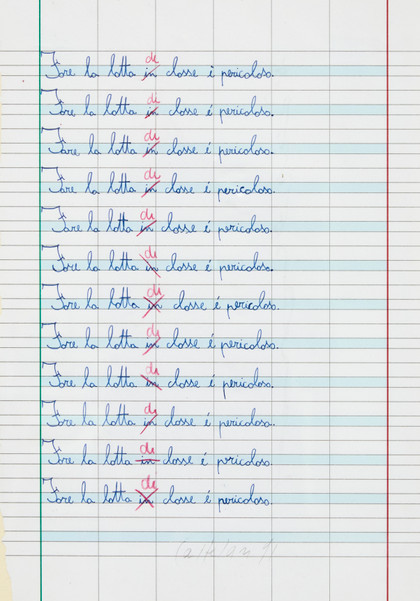 di
Fare la lotta in classe é pericoloso.
di
Fare la lotta in classe é pericoloso.
di
Fare la lotta in classe é pericoloso.
di
Fare la lotta in classe é pericoloso.
di
Fare la lotta in classe é pericoloso.
di
Fare la lotta in classe é pericoloso.
di
Fare la lotta in classe é pericoloso.
di
Fare la lotta in classe é pericoloso.
di
Fare la lotta in classe é pericoloso.
di
Fare la lotta in classe é pericoloso.
di
Fare la lotta in classe é pericoloso.
di
Fare la lotta in classe é pericoloso.